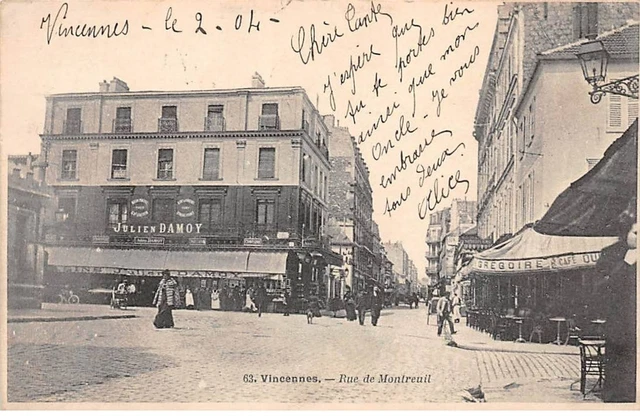 Vincennes - le 2 - 04 -
Chère Tante
J'espère que
tu te portes bien
ainsi que mon
oncle - Je vous
embrasse
tous deux
Alice
JULIEN DAMOY
GREGOIRE
CAFÉ
63. Vincennes. — Rue de Montreuil